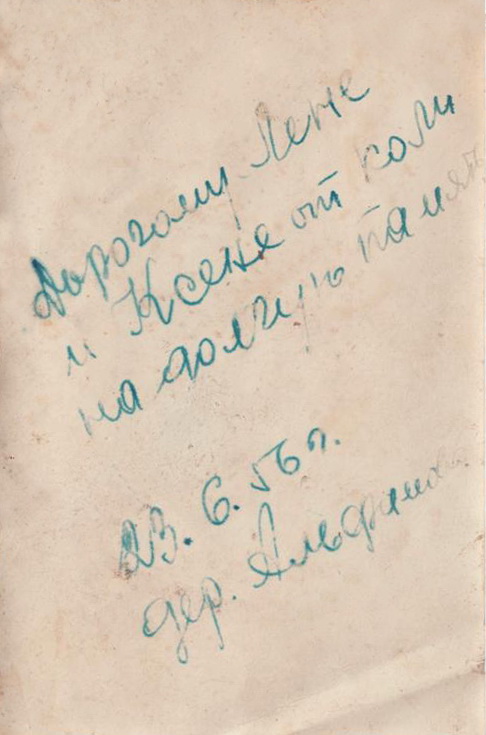 Дорогому Лене
и Ксене от коли
на долгую памят
23. 6. 56 г.
дер.